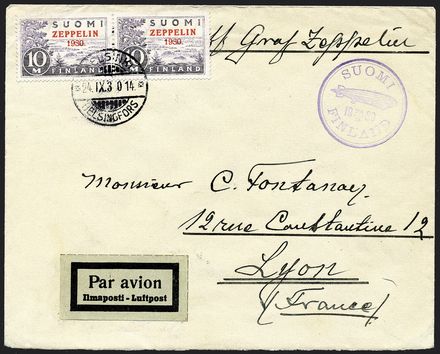 SUOMI
ZEPPELIN
1930
10 M
FINLAND
SUOMI
ZEPPELIN
1930.
10 M
FINLAND
Graf Zeppelin
24.IX.30 14.
HELSINGFORS
SUOMI
FINLAND
Monsieur C. Fontanay
12 rue Constantine 12
Lyon
(France)
Par avion
Ilmaposti - Luftpost